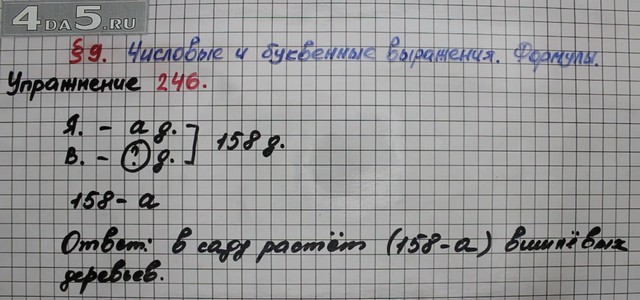 4DA5.RU
§ 9. Числовые и буквенные выражения. Формулы.
Упражнение 246.
Я. - а д.
В. - ? д. ] 158 д.
158 - а
Ответ: в саду растёт (158-а) вишнёвых
деревьев.